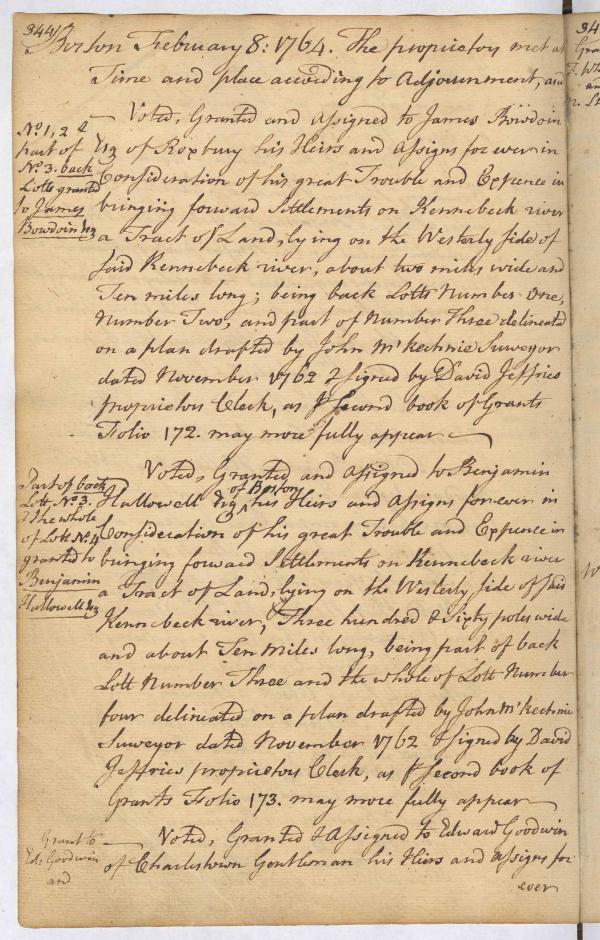 344
Boston February 8: 1764. The proprietors met at
Time and place according to Adjournment, and
Voted, Granted and Assigned to James Bowdoin
Esq of Roxbury his Heirs and Assigns for ever in
Consideration of his great Trouble and Expence in
bringing forward Settlements on Kennebeck river
a Tract of Land, lying on the Westerly side of
said Kennebeck river, about two miles wide and
Ten miles long; being back Lotts Number One,
Number Two, and part of Number Three delineated
on a plan drafted by John McKechnie Surveyor
dated November 1762 & signed by David Jeffries
proprietors Clerk, as pr second book of Grants
Folio 172. may more fully appear
No. 1, 2 &
part of
No. 3. back
Lotts granted
to James
Bowdoin Esq
Voted, Granted and Assigned to Benjamin
Hallowell Esq of Boston his Heirs and Assigns for ever in
Consideration of his great Trouble and Expence in
bringing forward Settlements on Kennebeck river
a Tract of Land, lying on the Westerly side of said
Kennebeck river, Three hundred & sixty poles wide
and about Ten miles long, being part of back
Lott Number Three and the whole of Lott Number
four delineated on a plan drafted by John McKechnie
Surveyor dated November 1762 & signed by David
Jeffries proprietors Clerk, as pr second book of
Grants Folio 173. may more fully appear
Part of back
Lott No. 3.
& the whole
of Lott No. 4
granted to
Benjamin
Hallowell Esq
Voted, Granted & Assigned to Edward Goodwin
of Charlestown Gentleman his Heirs and Assigns for
ever
Grant to
Ed: Goodwin
and
34
Gra